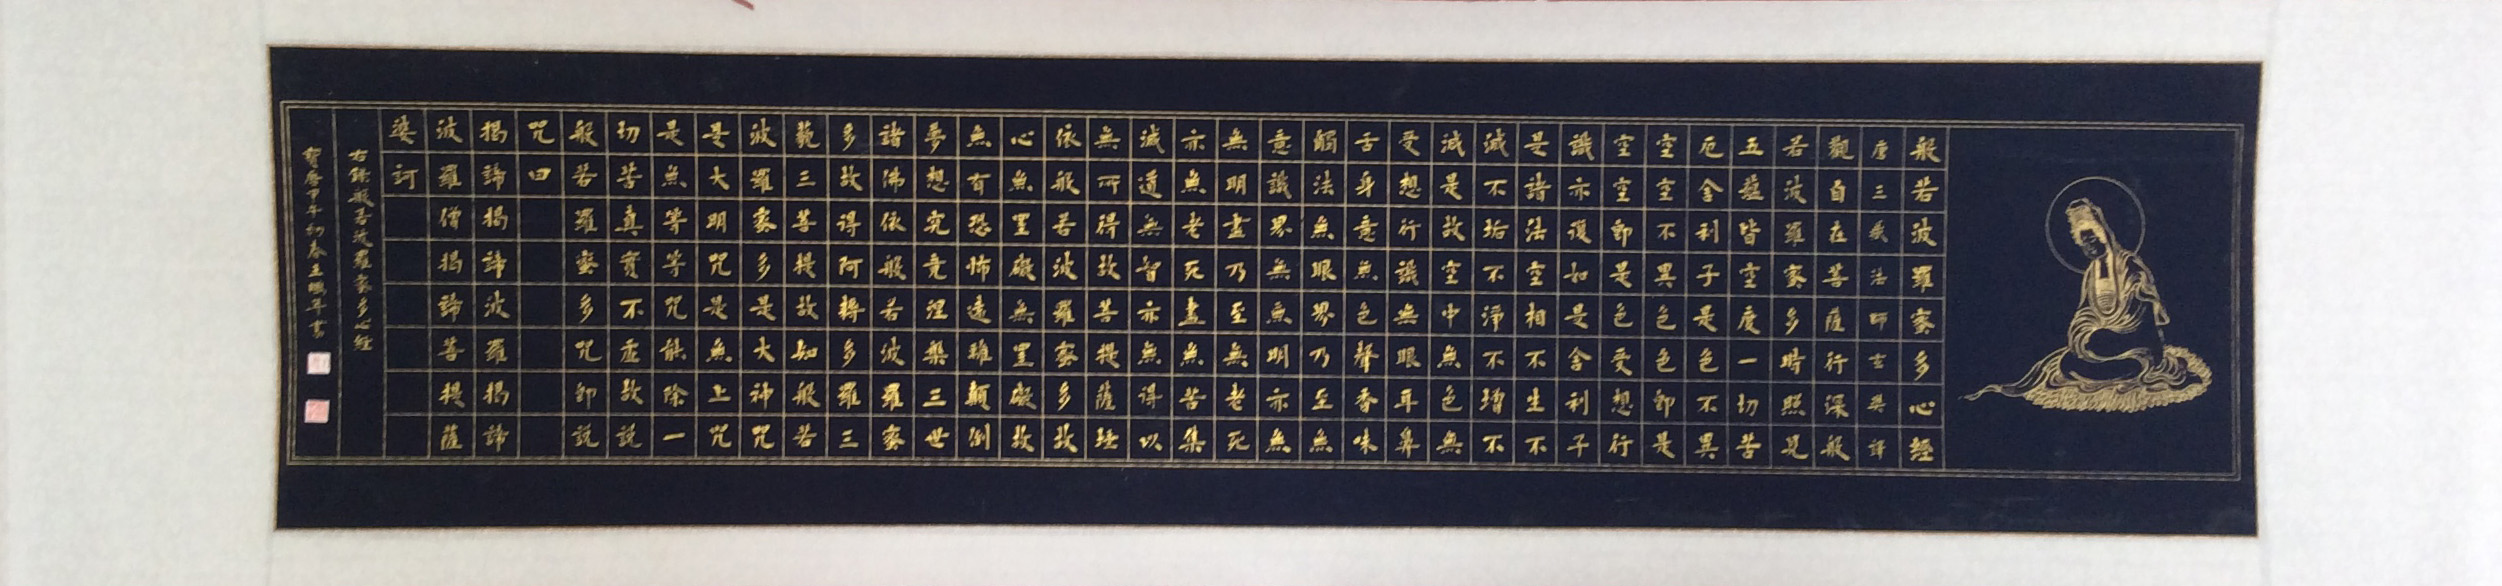 般若波羅蜜多心經
唐三藏法師玄奘譯
觀自在菩薩行深般
若波羅蜜多時照見
五蘊皆空度一切苦
厄舍利子是色不異
空空不異色色即是
空空即是色受想行
識亦復如是舍利子
是諸法空相不生不
滅不垢不淨不增不
減是故空中無色無
受想行識無眼耳鼻
舌身意無色聲香味
觸法無眼界乃至無
意識界無無明亦無
無明盡乃至無老死
亦無老死盡無苦集
滅道無智亦無得以
無所得故菩提薩埵
依般若波羅蜜多故
心無罣礙無罣礙故
無有恐怖遠離顛倒
夢想究竟涅槃三世
諸佛依般若波羅蜜
多故得阿耨多羅三
藐三菩提故知般若
波羅蜜多是大神咒
是大明咒是無上咒
是無等等咒能除一
切苦真實不虛故說
般若羅蜜多咒即說
咒曰
揭諦揭諦波羅揭諦
波羅僧揭諦菩提薩
婆訶
右錄般若波羅蜜多心經
甲午初春王年書